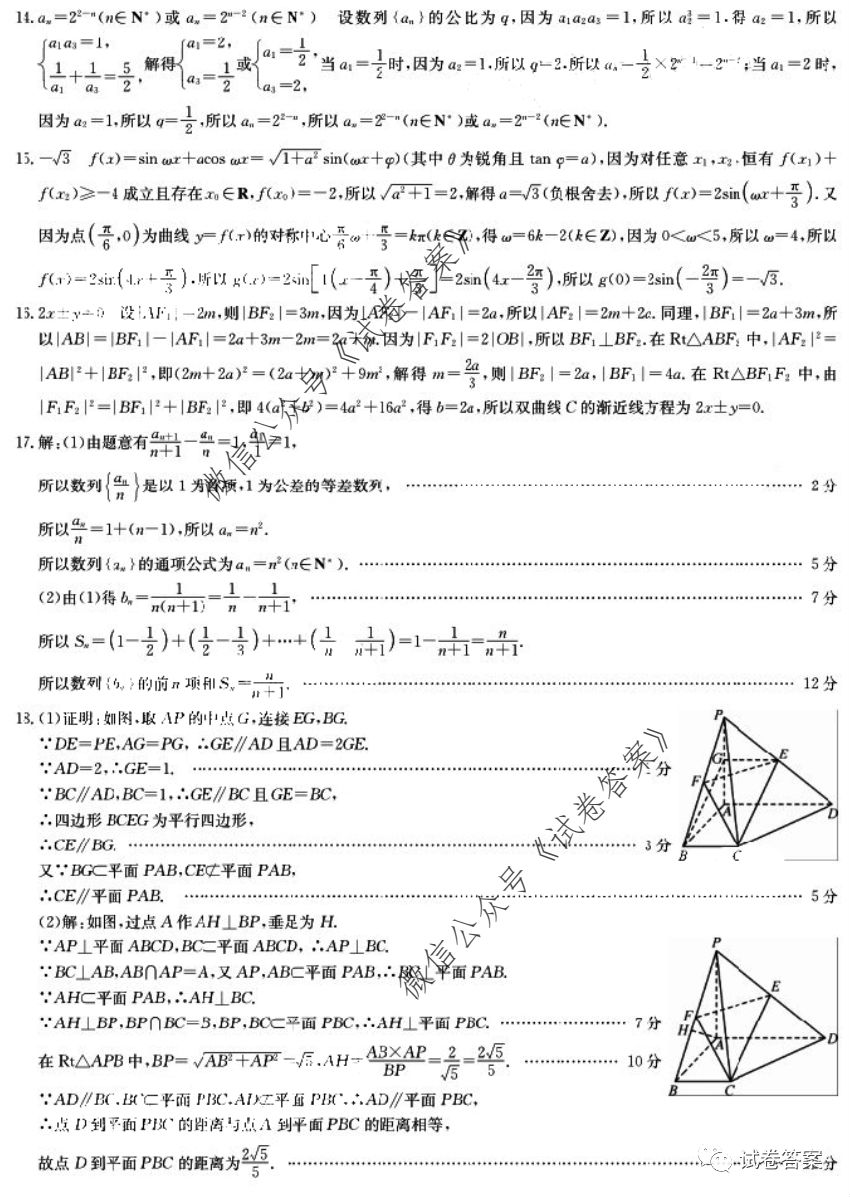 14. aₙ=2²⁻ⁿ(n∈N*)或 aₙ=2ⁿ⁻²(n∈N*) 设数列{aₙ}的公比为 q,因为 a₁a₂a₃=1,所以 a₂³=1.得 a₂=1,所以
{a₁a₃=1, 1/a₁+1/a₃=5/2, 解得{a₁=2, a₃=1/2 或{a₁=1/2, a₃=2, 当 a₁=1/2时,因为 a₂=1,所以 q=2.所以 aₙ=1/2×2ⁿ⁻¹=2ⁿ⁻²;当 a₁=2 时,
因为 a₂=1,所以 q=1/2,所以 aₙ=2²⁻ⁿ,所以 aₙ=2²⁻ⁿ(n∈N*)或 aₙ=2ⁿ⁻²(n∈N*).
15. -√3 f(x)=sin ωx+acos ωx=√(1+a²) sin(ωx+φ)(其中 θ 为锐角且 tan φ=a),因为对任意 x₁,x₂,恒有 f(x₁)+
f(x₂)≥-4 成立且存在 x₀∈R,f(x₀)=-2,所以√(a²+1)=2,解得 a=√3(负根舍去),所以 f(x)=2sin(ωx+π/3).又
因为点(π/6,0)为曲线 y=f(x)的对称中心 π/6 ω+π/3=kπ(k∈Z),得 ω=6k-2(k∈Z),因为 0<ω<5,所以 ω=4,所以
f(x)=2sin(4x+π/3),所以 g(x)=2sin[4(x-π/4)+π/3]=2sin(4x-2π/3),所以 g(0)=2sin(-2π/3)=-√3.
16. 2x±y=0 设|AF₁|=2m,则|BF₂|=3m,因为|AF₂|-|AF₁|=2a,所以|AF₂|=2m+2a.同理,|BF₁|=2a+3m,所
以|AB|=|BF₁|-|AF₁|=2a+3m-2m=2a+m.因为|F₁F₂|=2|OB|,所以 BF₁⊥BF₂.在 Rt△ABF₂ 中,|AF₂|²=
|AB|²+|BF₂|²,即(2m+2a)²=(2a+m)²+9m²,解得 m=2a/3,则|BF₂|=2a,|BF₁|=4a.在 Rt△BF₁F₂ 中,由
|F₁F₂|²=|BF₁|²+|BF₂|²,即 4(a²+b²)=4a²+16a²,得 b=2a,所以双曲线 C 的渐近线方程为 2x±y=0.
17. 解:(1)由题意有 aₙ₊₁/(n+1)-aₙ/n=1,a₁/1=1,
所以数列{aₙ/n}是以 1 为首项,1 为公差的等差数列, …… 2 分
所以 aₙ/n=1+(n-1),所以 aₙ=n².
所以数列{aₙ}的通项公式为 aₙ=n²(n∈N*). …… 5 分
(2)由(1)得 bₙ=1/(n(n+1))=1/n-1/(n+1), …… 7 分
所以 Sₙ=(1-1/2)+(1/2-1/3)+…+(1/n 1/(n+1))=1-1/(n+1)=n/(n+1).
所以数列{bₙ}的前 n 项和 Sₙ=n/(n+1). …… 12 分
18. (1)证明:如图,取 AP 的中点 G,连接 EG,BG.
∵DE=PE,AG=PG, ∴GE∥AD 且 AD=2GE.
∵AD=2,∴GE=1. …… 分
∵BC∥AD,BC=1,∴GE∥BC 且 GE=BC,
∴四边形 BCEG 为平行四边形,
∴CE∥BG. …… 3 分
又∵BG⊂平面 PAB,CE⊄平面 PAB,
∴CE∥平面 PAB. …… 5 分
P
G
E
F
A
D
B
C
(2)解:如图,过点 A 作 AH⊥BP,垂足为 H.
∵AP⊥平面 ABCD,BC⊂平面 ABCD, ∴AP⊥BC.
∵BC⊥AB,AB∩AP=A,又 AP,AB⊂平面 PAB,∴BC⊥平面 PAB.
∵AH⊂平面 PAB,∴AH⊥BC.
∵AH⊥BP,BP∩BC=B,BP,BC⊂平面 PBC,∴AH⊥平面 PBC. …… 7 分
在 Rt△APB 中,BP=√(AB²+AP²)=√5,AH=AB×AP/BP=2/√5=2√5/5. …… 10 分
∵AD∥BC,BC⊂平面 PBC,AD⊄平面 PBC,∴AD∥平面 PBC,
∴点 D 到平面 PBC 的距离与点 A 到平面 PBC 的距离相等,
故点 D 到平面 PBC 的距离为 2√5/5. …… 分
P
E
F
H
A
D
B
C
微信公众号《试卷答案》
微信公众号《试卷答案》
试卷答案